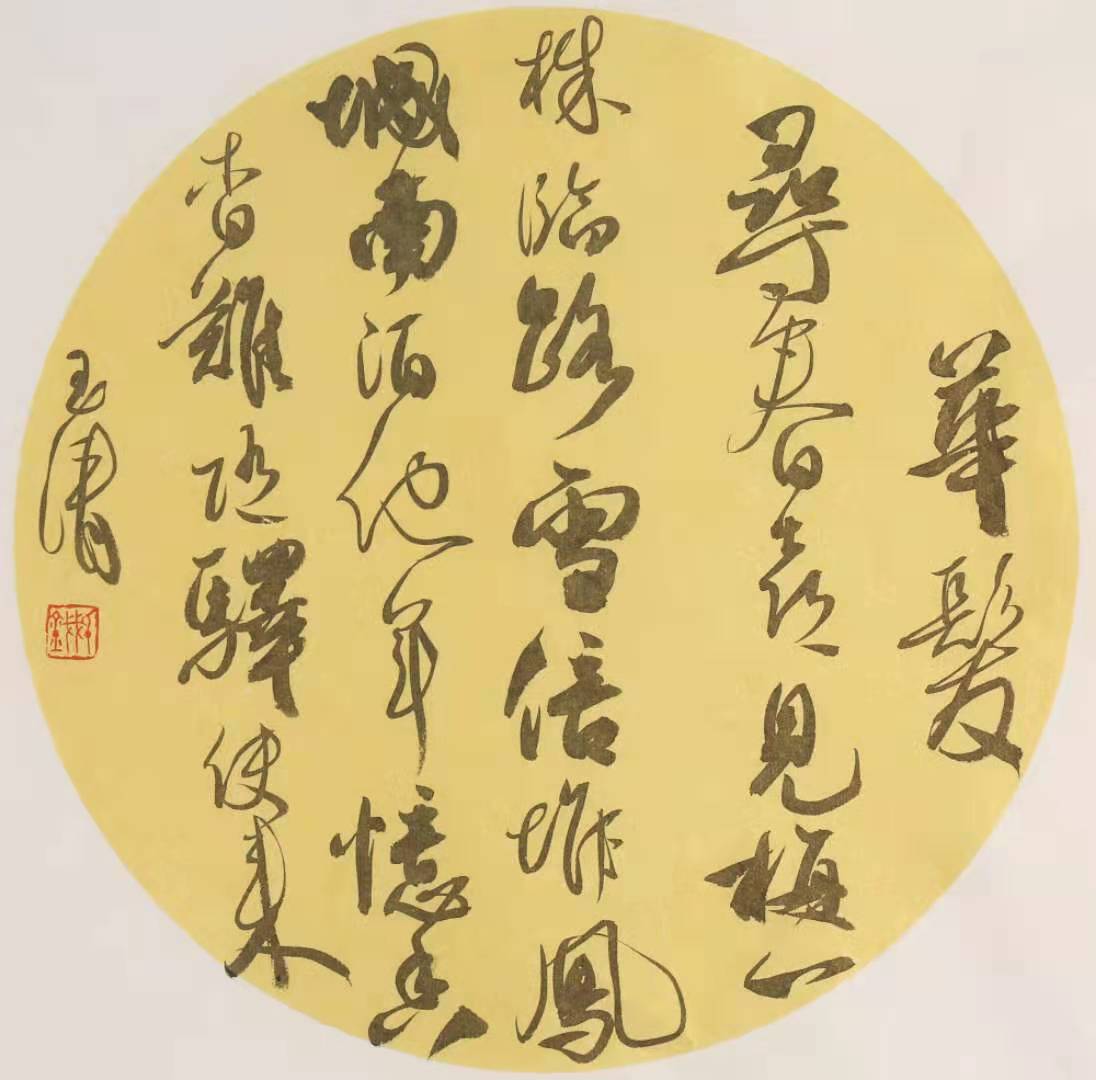 華髮
尋春喜見梅一
株臨路雪倍堆鳳
城南陌他年憶香
杳難隨驛使來
玉